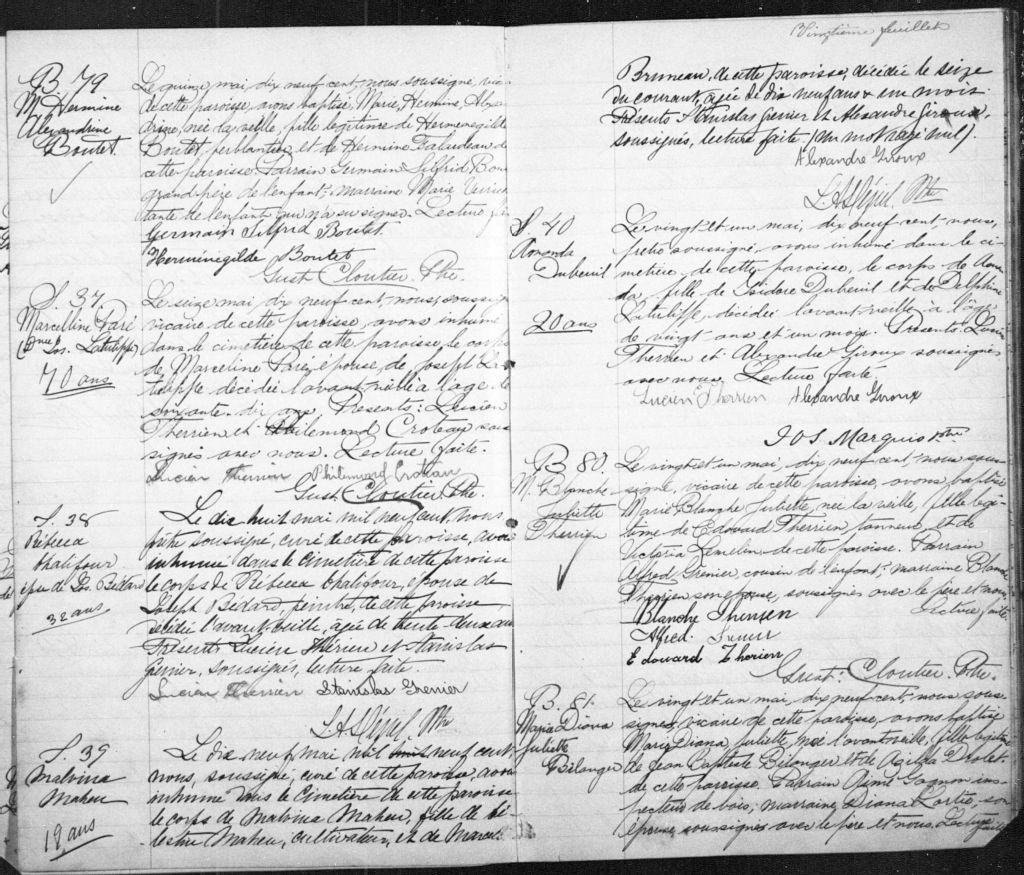 B 79
M. Hermine
Alexandrine
Boutet.
Le quinze mai, dix neuf cent, nous soussigné, vic
de cette paroisse, avons baptisé, Marie, Hermine, Alex
drine, née la veille, fille légitime de Hermenegilde
Boutet, ferblantier et de Hermine Galaudeau de
cette paroisse. Parrain Germain Silfrid Bou
grand-père de l'enfant; marraine Marie
tante de l'enfant qui n'a su signer. Lecture
Germain Silfrid Boutet.
Herménégilde Boutet
Gust. Cloutier Ptre.
S. 37
Marcelline Paré
(Epse Jos. Latulippe)
70 ans
Le seize mai, dix neuf cent, nous, soussig
vicaire de cette paroisse, avons inhumé
dans le cimetière de cette paroisse, le corps
de Marceline Paré, épouse, de Joseph La
tulippe décédée l'avant-veille à l'âge de
soixante-dix ans. Présents: Lucien
Therrien et Philemond Croteau sous
signés avec nous. Lecture faite.
Lucien Therrien Philemond Croteau
Gust. Cloutier Ptre.
S. 38
Rébecca
Chalifour
épse de Jos. Bédard
32 ans
Le dix huit mai mil neuf cent, nous
prêtre soussigné, curé de cette paroisse, avons
inhumé dans le cimetière de cette paroisse
le corps de Rébecca Chalifour, épouse de
Joseph Bédard, peintre, de cette paroisse,
décédée l'avant veille, agée de trente deux ans
Présents Lucien Thérrien et Stanislas
Grenier, soussignés, lecture faite.
Lucien Therrien Stanislas Grenier
Ptre
S. 39
Malvina
Maheu
19 ans
Le dix neuf mai mil neuf cent
nous, soussigné, curé de cette paroisse, avons
inhumé dans le cimetière de cette paroisse
le corps de Malvina Maheu, fille de Cé-
lestin Maheu, cultivateur, et de Marcel.
Vingtième feuillet
Bruneau, de cette paroisse, décédée le seize
du courant, agée de dix neuf ans & un mois.
Présents Stanislas Grenier et Alexandre Giroux,
soussignés, lecture faite. (Un mot rayé nul).
Alexandre Giroux
Ptre
S. 40
Amanda
Dubeuil
20 ans
Le vingt et un mai, dix neuf cent, nous,
prêtre soussigné, avons inhumé dans le ci-
metière de cette paroisse, le corps de Aman
da, fille de Isidore Dubeuil et de Delphine
Latulippe, décédée l'avant-veille à l'âge
de vingt ans et un mois. Présents Lucien
Therrien et Alexandre Giroux soussignés
avec nous. Lecture faite.
Lucien Therrien Alexandre Giroux
Jos. Marquis ptre
B 80.
M. Blanche
Juliette
Therrien
Le vingt et un mai, dix neuf cent, nous sous-
signé, vicaire de cette paroisse, avons baptisé
Marie Blanche Juliette, née la veille, fille légi-
time de Edouard Therrien tanneur, et de
Victoria Lemelin de cette paroisse. Parrain
Alfred Grenier, cousin de l'enfant; marraine Blanche
Therrien son épouse, soussignés avec le père et nous.
Lecture faite.
Blanche Therrien
Alfred Grenier
Edouard Therien
Gust. Cloutier Ptre.
B. 81.
Maria Diana
Juliette
Bélanger
Le vingt et un mai, dix neuf cent, nous sous-
signé, vicaire de cette paroisse, avons baptisé
Marie Diana, Juliette, née l'avant-veille, fille légitime
de Jean Baptiste Bélanger et de Drolet.
de cette paroisse. Parrain Gagnon ins-
pecteur de bois, marraine, Diana Fortier, son
épouse, soussignés avec le père et nous. Lecture
faite